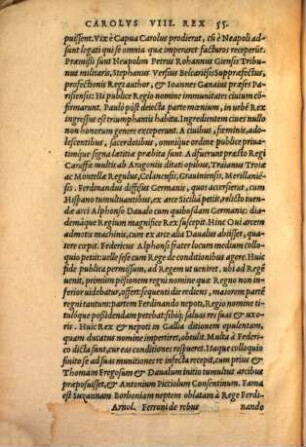 CAROLVS VIII. REX 55.
puissent. Vix è Capua Carolus prodierat, cũ è Neapoli ad-
sunt legati qui se omnia quæ imperaret facturos receperũt.
Præmissi sunt Neapolim Petrus Rohannus Giensis Tribu-
nus militaris, Stephanus Versius Belcariensis Suppræfectus,
profectionis Regi author, & Ioannes Ganaius præses Pa-
risiensis: Hi publicè Regio nomine immunitates ciuium cõ-
firmarunt. Paulò pòst deiecta parte mœnium, in vrbẽ Rex
ingressus est triumphantis habitu. Ingredientem ciues nullo
non honorum genere exceperunt. A ciuibus, fœminis, ado-
lescentibus, sacerdotibus, omnique ordine publicè priua-
timque signa lætitiæ præbita sunt. Adfuerunt præctò Regi
Caraffæ multis ab Aragoniis ditati opibus, Traianus Troia
ac Montellæ Regulus, Celanensis, Grauiniensis, Merollanien-
sis. Ferdinandus diffisus Germanis, quos accersisset, cum
Hispano tumultuantibus, ex arce Siciliã petiit, relicto tuendæ
arci Alphonso Daualo cum quibusdam Germanis: duæ
demàque Regium magnisicè Rex suscepit. Hinc Oui arcem
admotis machinis, cum ex arte alia Daualus abisset, quas-
satre cœpit. Federicus Alphonsi frater locum medium collo-
quio petiit: velle sese cum Rege de conditionibus agere. Huic
fide publica permissum, ad Regem ut ueniret. ubi ad Regẽ
uenit, primùm possessionem regni nomine quæ Regno non in-
ferior uidebatur, offert: sequenti die rediens, maiorem partẽ
regni tantùm: partem Ferdinando nepoti, Regio nomine titu-
lóque possidendam petebat: sibíq; saluas res suas & uxo-
ris. Huic Rex & nepoti in Gallia ditionem opulentam,
quam ducatus nomine impertiret, obtulit. Multa à Federi-
co dicta sunt, cur eas conditiones respueret. Itaque colloquio
finito se ad suas munitiones re infecta recepit, cum prius &
Thomam Fregosum & Daualum initio tumultus arcibus
præposuisset, & Antonium Picciolum Consentinum. Fama
est Susannam Borboniam neptem oblatam à Rege Ferdi-
Arnol. Ferroni de rebus nando